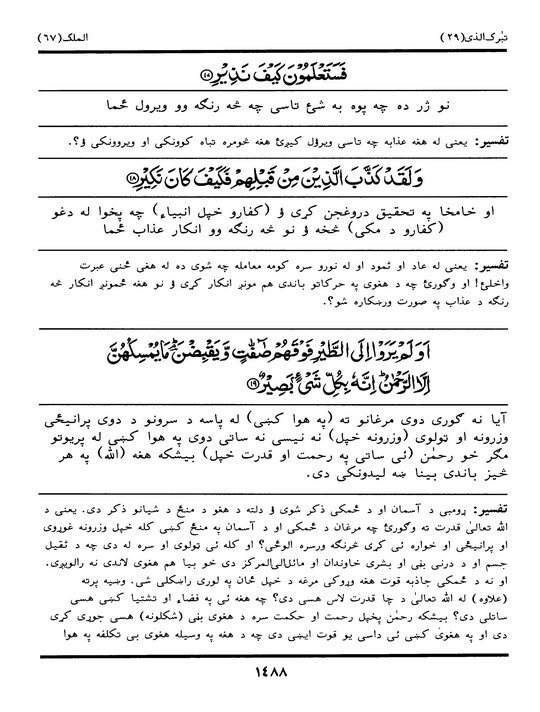 تبٰرك الذى(٢٩) الملك(٦٧)
فَسَتَعْلَمُوْنَ كَيْفَ نَذِيْرِ ⑰
نو ژر ده چه پوه به شئ تاسې چه څه رنګه وو ويرول ځما
تفسير: يعنى له هغه عذابه چه تاسې ويرؤل کيږئ هغه څومره تباه کوونکى او ويروونکى ؤ؟.
وَلَقَدْ كَذَّبَ الَّذِيْنَ مِنْ قَبْلِهِمْ فَكَيْفَ كَانَ نَكِيْرِ ⑱
او خامخا په تحقيق دروغجن کړى ؤ (کفارو خپل انبياء) چه پخوا له دغو
(کفارو د مکې) څخه ؤ نو څه رنګه وو انکار عذاب ځما
تفسير: يعنى له عاد او ثمود او له نورو سره کومه معامله چه شوې ده له هغې ځنې عبرت
واخلئ! او وګورئ چه د هغوى په حرکاتو باندې هم مونږ انکار کړى ؤ نو هغه ځمونږ انکار څه
رنګه د عذاب په صورت ورښکاره شو؟.
اَوَلَمْ يَرَوْا اِلَى الطَّيْرِ فَوْقَهُمْ صٰٓفّٰتٍ وَّيَقْبِضْنَ ۘؔ مَا يُمْسِكُهُنَّ
اِلَّا الرَّحْمٰنُ ؕ اِنَّهٗ بِكُلِّ شَىْءٍۭ بَصِيْرٌ ⑲
آيا نه ګورى دوى مرغانو ته (په هوا کښې) له پاسه د سرونو د دوى پرانيځى
وزرونه او ټولوى (وزرونه خپل) نه نيسى نه ساتى دوى په هوا کښې له پريوتو
مګر خو رحمٰن (ئې ساتى په رحمت او قدرت خپل) بيشکه هغه (الله) په هر
څيز باندې بينا ښه ليدونکى دى.
تفسير: ړومبى د آسمان او د ځمکې ذکر شوى ؤ دلته د هغو د منځ د شيانو ذکر دى. يعنى د
الله تعالىٰ قدرت ته وګورئ چه مرغان د ځمکې او د آسمان په منځ کښې کله خپل وزرونه غوړوى
او پرانيځى او خواره ئې کړى څرنګه ورسره الوځى؟ او کله ئې ټولوى او سره له دې چه د ثقيل
جسم او د درنې بڼې او بشرې خاوندان او مائل‌الى‌المرکز دى خو بيا هم هغوى لاندې نه رالويږى.
او نه د ځمکې جاذبه قوت هغه وړوکى مرغه د خپل ځان په لورى راښکلى شى. وښيه پرته
(علاوه) له الله تعالىٰ د چا قدرت لاس هسې دى؟ چه هغه ئې په فضاء او تشتيا کښې هسې
ساتلى دى؟ بيشکه رحمٰن پخپل رحمت او حکمت سره د هغوى بڼې (شکلونه) هسې جوړې کړى
دى او په هغوى کښې ئې داسې يو قوت ايښى دى چه د هغه په وسيله هغوى بې تکلفه په هوا
١٤٨٨